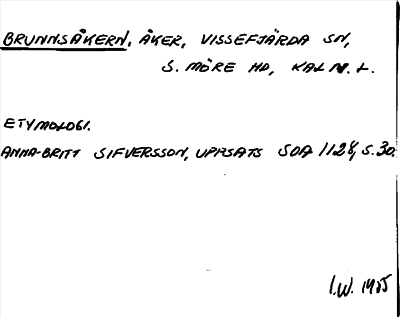 BRUNNSÅKERN, ÅKER, VISSEFJÄRDA SN,
S. MÖRE HD, KALM. L.
ETYMOLOGI.
ANNA-BRITT SIFVERSSON, UPPSATS SOA 1128, S. 30.
I.W. 1985